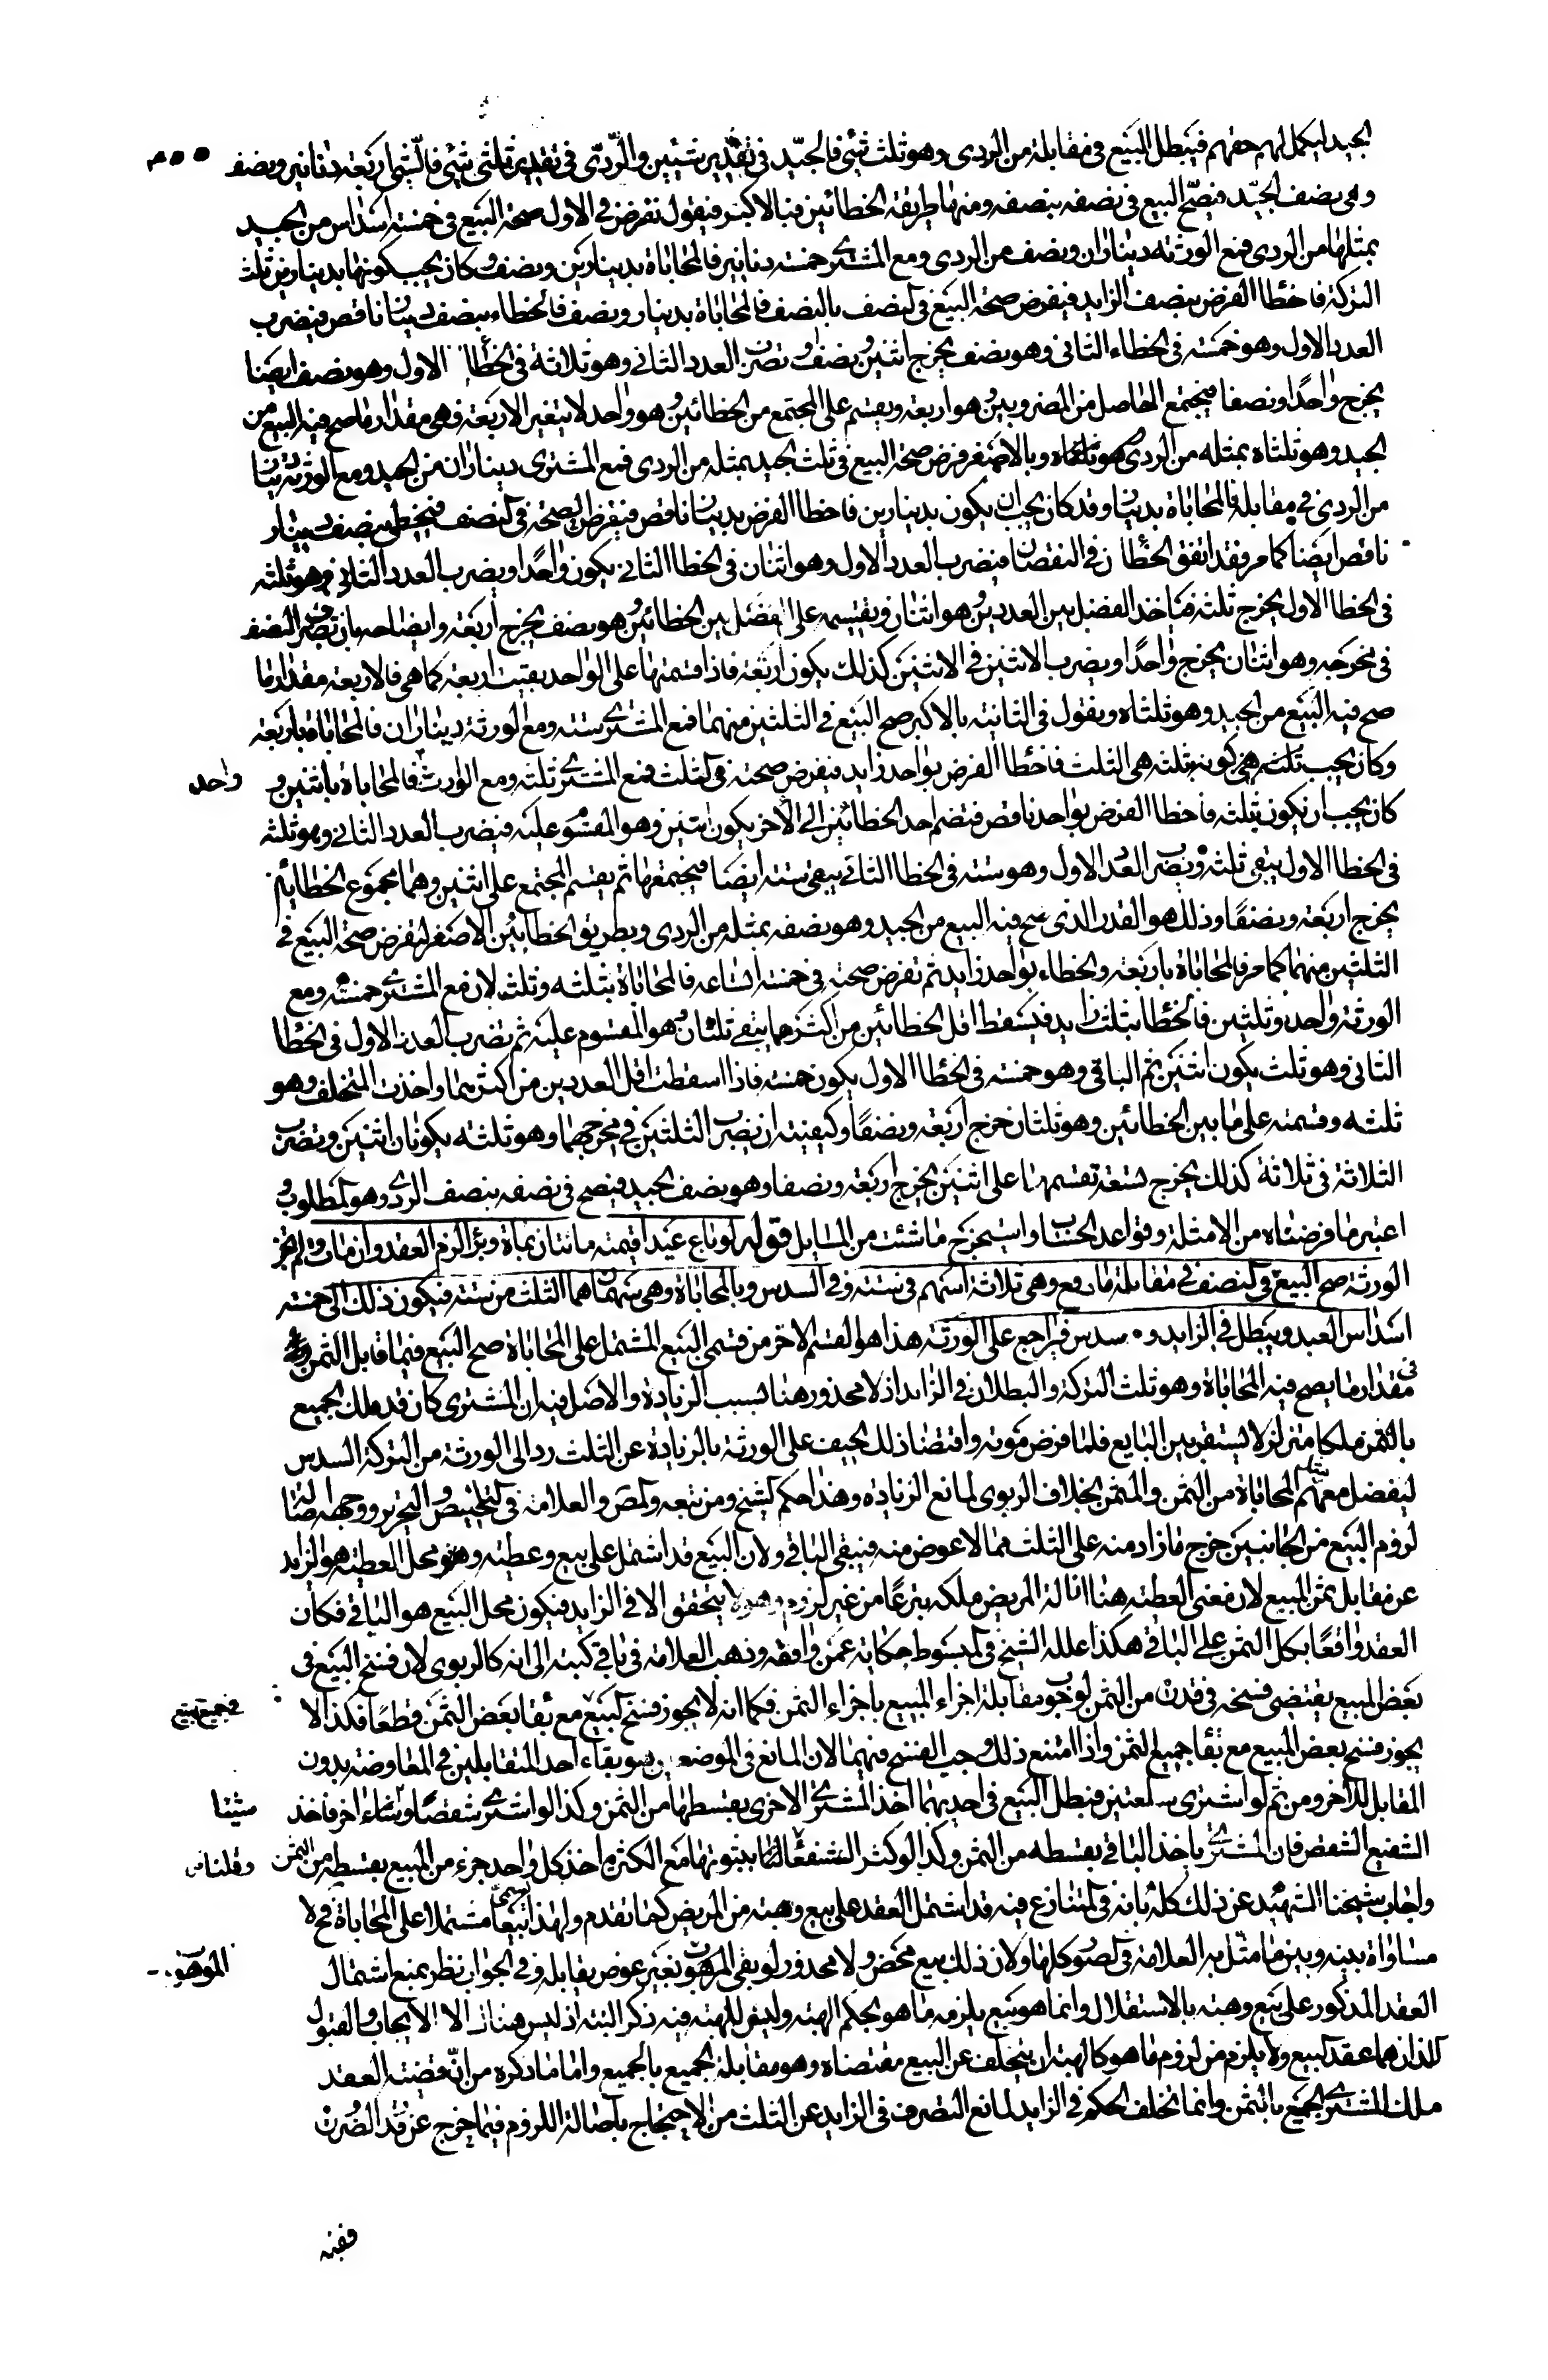 الجيد ليكمل لهم حقهم فيبطل البيع في مقابله من الردى وهو ثلث شئ فالجيد في تقدير شيئين والردى في تقدير ثلثى شئ فالشئ اربعة دنانير ونصف
وهى نصف الجيد فيصح البيع في نصفه بنصفه ومنها طريقة الخطائين فبالاكبر فيقول نفرض في الاول صحة البيع في خمسة اسداس من الجيد
بمثلها من الردى فمع الورثة ديناران ونصف من الردى ومع المشترى خمسة دنانير فالمحاباة بدينارين ونصف وكان يجب كونها بدينارين ثلث
التركة فاخطا الفرض بنصف الزايد فيفرض صحة البيع في النصف بالنصف فالمحاباة بدينار ونصف فالخطاء بنصف دينار ناقص فيضرب
العدد الاول وهو خمسة في الخطاء الثانى وهو نصف يخرج اثنين ونصف وتضرب العدد الثانى وهو ثلاثة في الخطا الاول وهو نصف ايضا
يخرج واحدا ونصفا فيجتمع الحاصل من المضروبين وهو اربعة ويقسم على المجتمع من الخطائين وهو واحد لا يتغير الاربعة فهى مقدار ما صح فيه البيع من
الجيد وهو ثلثاه بمثله من الردى وهو ثلثاه وبالاصغر فرض صحة البيع في ثلث الجيد بمثله من الردى فمع المشترى ديناران من الجيد ومع الورثة دينار
من الردى في مقابله فالمحاباة بدينار وقد كان يجب ان يكون بدينارين فاخطا الفرض بدينار ناقص فيفرض الصحة في النصف فيخطى بنصف دينار
ناقص ايضا كما مر فقد اتفق الخطاان في النقصان فيضرب العدد الاول وهو اثنان في الخطا الثانى يكون واحدا ويضرب العدد الثانى وهو ثلثة
في الخطا الاول يخرج ثلثة فياخذ الفضل بين العددين وهو اثنان ويقسمه على الفضل بين الخطائين وهو نصف يخرج اربعة وايضاحه بان تضرب النصف
في مخرجه وهو اثنان يخرج واحدا ويضرب الاثنين في الاثنين كذلك يكون اربعة فاذا قسمتها على الواحد بقيت اربعة كما هى فالاربعة مقدار ما
صح فيه البيع من الجيد وهو ثلثاه ويقول في الثانية بالاكبر صح البيع في الثلثين منهما فمع المشترى ستة ومع الورثة ديناران فالمحاباة باربعة
وكان يجب كونه ثلثة هى الثلث فاخطا الفرض بواحد زايد فيفرض صحته في الثلث فمع المشترى ثلثة ومع الوارث واحد فالمحاباة باثنين و
كان يجب ان يكون بثلثة فاخطا الفرض بواحد ناقص فتضم احد الخطائين الى الاخر يكون اثنين وهو المقسوم عليه فيضرب العدد الثانى وهو ثلثة
في الخطا الاول يبقى ثلثة ويضرب العدد الاول وهو ستة في الخطا الثانى يبقى ستة ايضا فيجتمعها ثم يقسم المجتمع على اثنين وهما مجموع الخطائين
يخرج اربعة ونصفا وذلك هو القدر الذى صح فيه البيع من الجيد وهو نصفه بمثله من الردى وبطريق الخطايين الاصغر ليفرض صحة البيع في
الثلثين منهما كما مر فالمحاباة باربعة والخطاء بواحد زايد ثم تفرض صحته في خمسة اتساعه فالمحاباة بثلثة وثلث لان مع المشترى خمسة ومع
الورثة واحد وثلثين فالخطا بثلث زايد فيسقط اقل الخطائين من اكثرهما يبقى ثلثان وهو المقسوم عليه ثم تضرب العدد الاول في الخطا
الثانى وهو ثلث يكون اثنين ثم الباقى وهو خمسة في الخطا الاول يكون خمسة فاذا اسقطت اقل العددين من اكثرهما واخذت المتخلف وهو
ثلثه وقسمته على ما بين الخطائين وهو ثلثان خرج اربعة ونصفا وكيفيته ان يضرب الثلثين في مخرجهما وهو ثلثة يكونان اثنين وتضرب
الثلاثة في ثلاثة كذلك يخرج تسعة تقسمها على اثنين يخرج اربعة ونصفا وهو نصف الجيد فيصح في نصفه بنصف الردى وهو المطلوب و
اعتبر ما فرضناه من الامثلة وقواعد الحساب واستخرج ما شئت من المسايل قوله لو باع عبدا قيمته مائتان بماة وبرأ لزم العقد وان مات ولم يجز
الورثة صح البيع في النصف في مقابلة ما دفع وهى ثلاثة اسهم في ستة وفي السدس وبالمحاباة وهى سهمان هما الثلث من ستة فيكون ذلك الى خمسة
اسداس العبد ويبطل في الزايد وهو سدس فيراجع على الورثة هذا هو القسم الاخر من قسمى البيع المشتمل على المحاباة صح البيع فيما قابل الثمن وفي
مقدار ما يصح فيه المحاباة وهو ثلث التركة والبطلان في الزايد اذ لا محذور هنا بسبب الزيادة والاصل فيه ان المشترى كان قد ملك الجميع
بالثمن ملكا متزلزلا يستقر بين البايع فلما فرض موته واقتضا ذلك الحيف على الورثة بالزيادة عن الثلث رد الى الورثة من التركة السدس
ليفضل معهم المحاباة من الثمن والمثمن بخلاف الربوى لمانع الزيادة وهذا حكم الشيخ ومن تبعه والمص والعلامة في التلخيص والتحرير ووجهه اصالة
لزوم البيع من الجانبين خرج ما زاد منه على الثلث مما لا عوض منه فيبقى الباقى ولان البيع قد اشتمل على بيع وعطية وهو محل العطية هو الزايد
عن مقابل ثمن المبيع لان معنى العطية هنا انالة المريض ملكه بتبرعا من غير لزوم وهو لا يتحقق الا في الزايد فيكون محل البيع هو الباقى فكان
العقد واقعا بكل الثمن على الباقى هكذا علله الشيخ في المبسوط حكاية عمن وافقه وذهب العلامة في باقى كتبه الى انه كالربوى لان فسخ البيع في
بعض المبيع يقتضى فسخه في قدره من الثمن لوجوب مقابلة اجزاء المبيع باجزاء الثمن فكما انه لا يجوز فسخ البيع في جميع المبيع مع بقا بعض الثمن قطعا فكذا لا
يجوز فسخ بعض المبيع مع بقا جميع الثمن واذا امتنع ذلك وجب الفسخ فيهما لان المانع في الموضعين هو بقاء احد المتقابلين في المعاوضة بدون
المقابل الاخر ومن ثم لو اشترى سلعتين فبطل البيع في احديهما اخذ المشترى الاخرى بقسطها من الثمن وكذا لو اشترى شقصا وشيئا اخر فاخذ
الشفيع الشقص فان المشترى ياخذ الباقى بقسطه من الثمن وكذا لو كثر الشفعا وقلنا بثبوتها مع الكثرة اخذ كل واحد جزء من المبيع بقسطه من الثمن
واجاب شيخنا الشهيد عن ذلك كله بانه في المتنازع فيه قد اشتمل العقد على بيع وهبة من المريض كما تقدم ولهذا يسمى بيعا مشتملا على المحاباة فح لا
مساواة بينه وبين ما مثل به العلامة في الصور كلها ولان ذلك بيع محض ولا محذور لو بقى الموهوب بغير عوض يقابله وفي الجواب نظر بمنع اشتمال
العقد المذكور على بيع وهبة بالاستقلال وانما هو بيع يلزمه ما هو بحكم الهبة وليس للهبة فيه ذكر البتة اذ ليس هناك الا الايجاب والقبول
اللذان هما عقد البيع ولا يلزم من لزوم ما هو كالهبة ان يتخلف عن البيع مقتضاه وهو مقابلة الجميع بالجميع واما ما ذكره من ان قضية العقد
ملك المشترى الجميع بالثمن وانما تخلف الحكم في الزايد لمانع التصرف في الزايد عن الثلث من الاحتجاج باصالة اللزوم فيما خرج عن قدر الضرورة
ففيه